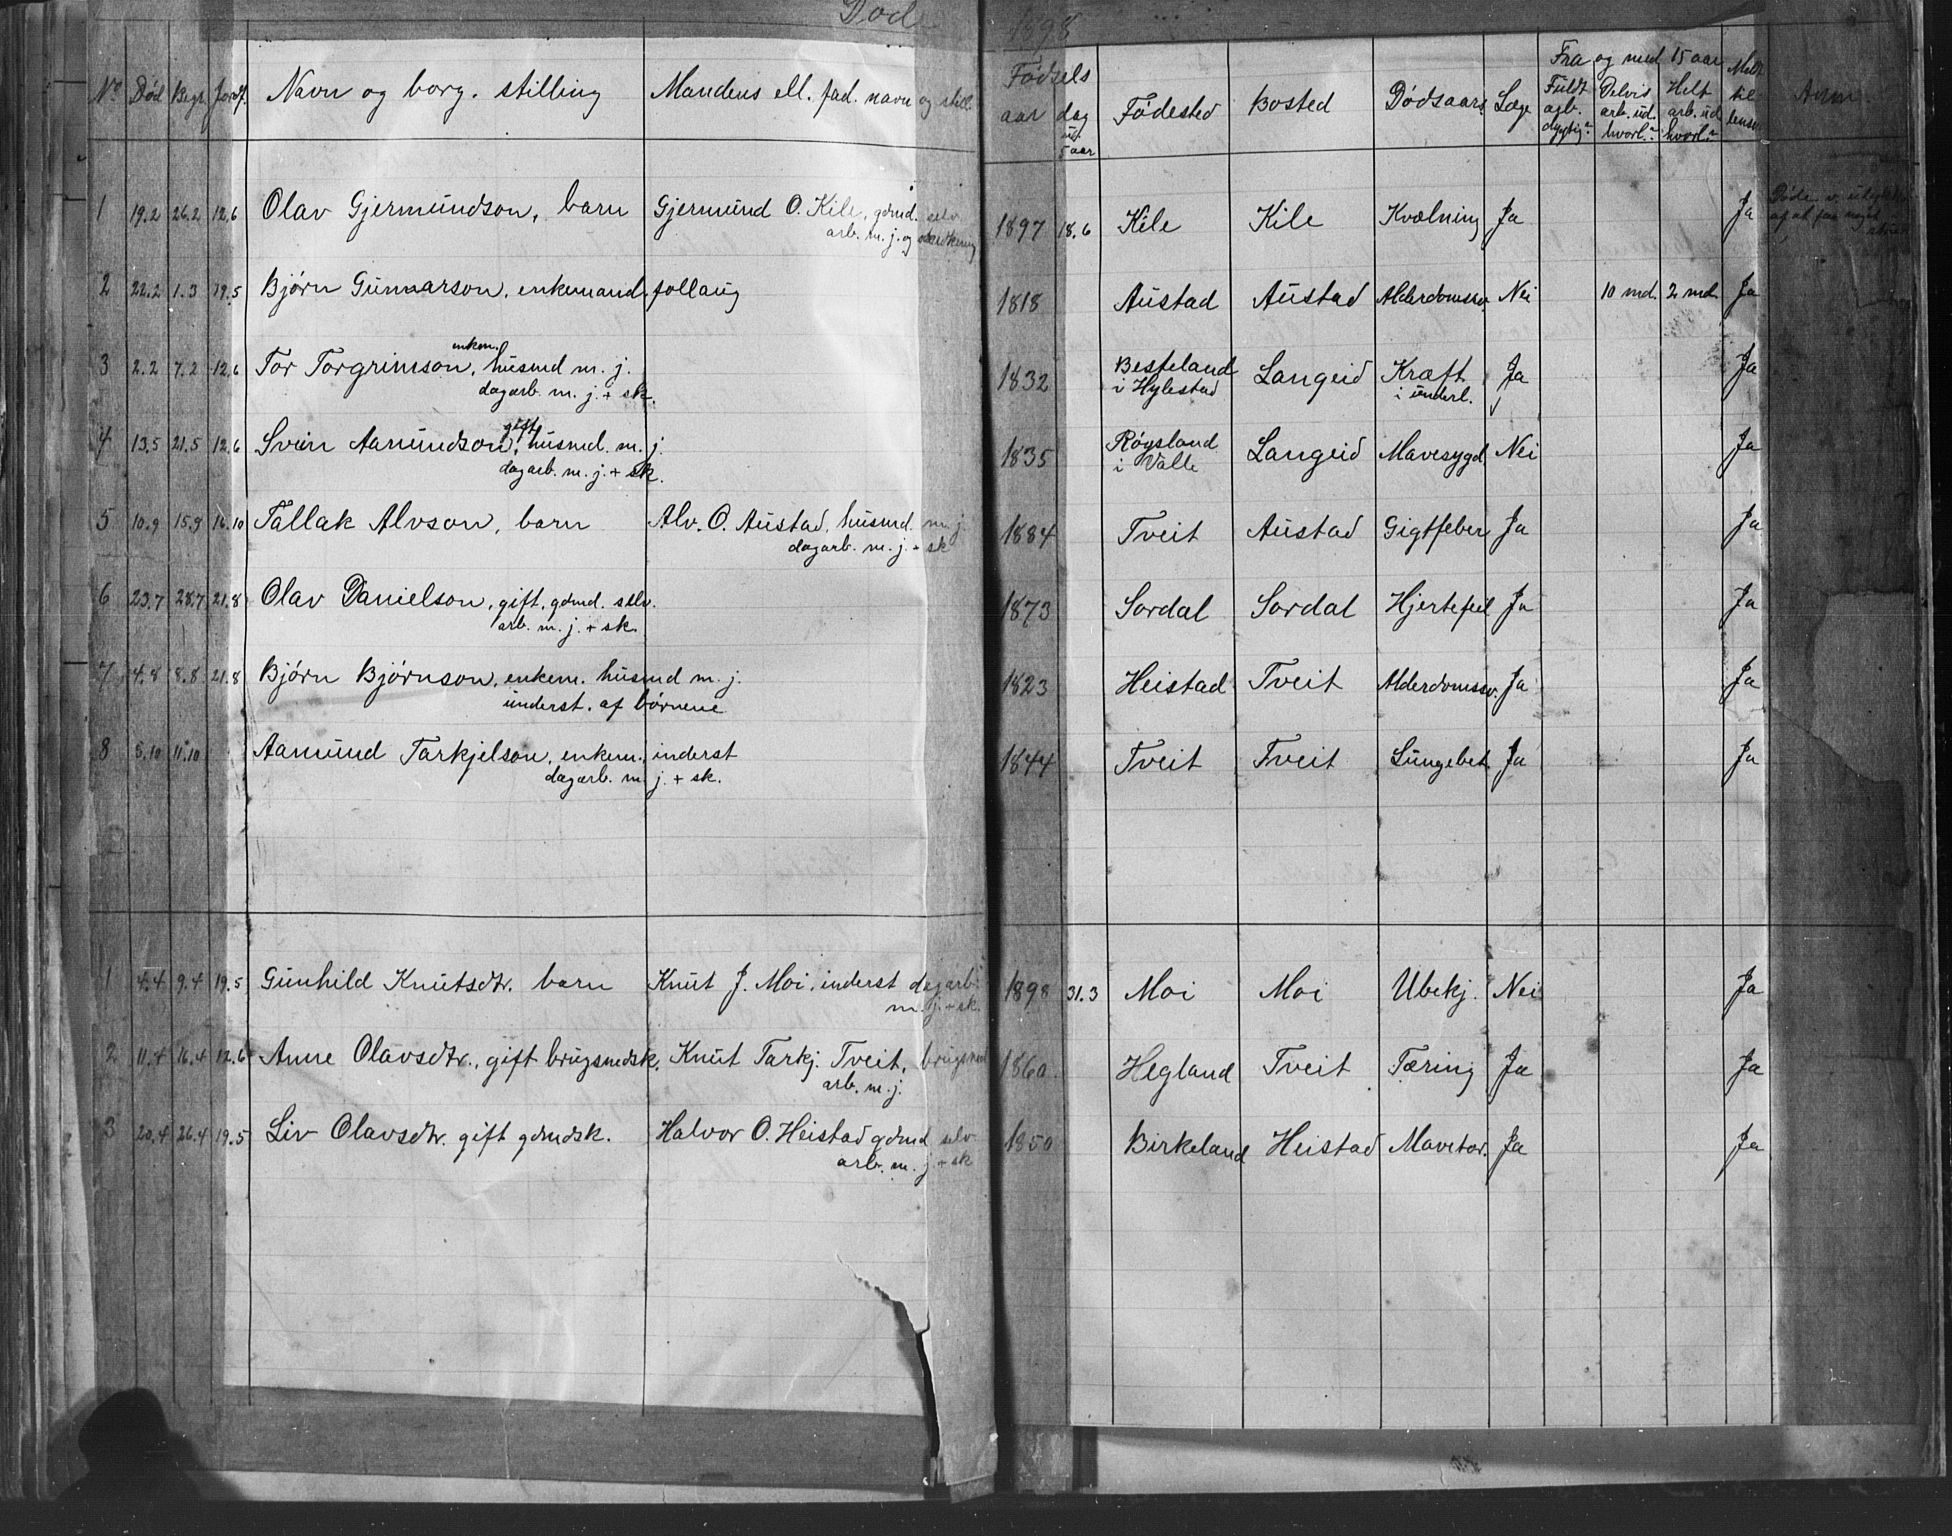 Døde 1898
No Død Begr. Jordf. Navn og borg. stilling Mandens ell. fad. navn og still. Fødsels aar dag u/ 5 aar Fødested Bosted Dødsaars. Læge Fra og med 15 aar Fuldt arb. dygtig? Delvis arb. ud. hvorl.? Helt arb. ud hvorl.? Meldt til lensm. Anm.
1 19.2 26.2 12.6 Olav Gjermundson, barn Gjermund O. Kile, gdmd. selv. 1897 18.6 Kile Kile Kvælning Ja Ja
arb. m. j. og
2 22.2 1.3 19.5 Bjørn Gunnarson, enkemand, follaug 1818 Austad Austad Alderdomssv. Nei 10 md. 2 md. Ja
3 2.2 7.2 12.6 Tor Torgrimson, enkem. husmd m. j. 1832 Besteland i Hylestad Langeid Kræft i underl. Ja Ja
dagarb. m. j. + sk.
4 13.5 21.5 12.6 Svein Aamundson, gift, husmd. m. j. 1835 Røysland i Valle Langeid Mavesygd. Nei Ja
dagarb. m. j. + sk.
5 10.9 15.9 16.10 Tallak Alvson, barn Alv. O. Austad, husmd. m. j. 1884 Tveit Austad Gigtfeber Ja Ja
dagarb. m. j. + sk
6 23.7 28.7 21.8 Olav Danielson, gift, gdmd. selv. 1873 Sordal Sordal Hjertefeil Ja Ja
arb. m. j. + sk.
7 4.8 8.8 21.8 Bjørn Bjørnson, enkem. husmd m. j. 1823 Heistad Tveit Alderdomssv. Ja Ja
underst. af børnene
8 5.10 11.10 Aamund Tarkjelson, enkem., inderst 1844 Tveit Tveit Lungebet. Ja Ja
dagarb. m. j. + sk.
1 4.4 9.4 19.5 Gunhild Knutsdtr. barn Knut J. Moi, inderst dagarb. 1898 31.3 Moi Moi Ubekj. Nei Ja
m. j. + sk.
2 11.4 16.4 12.6 Anne Olavsdtr., gift brugsmdsk. Knut Tarkj. Tveit, brugsmd 1860 Hegland Tveit Tæring Ja Ja
arb. m. j.
3 20.4 26.4 19.5 Liv Olavsdtr. gift gdmdsk. Halvor O. Heistad gdmd selv 1850 Birkeland Heistad Mavetor. Ja Ja
arb. m. j. + sk